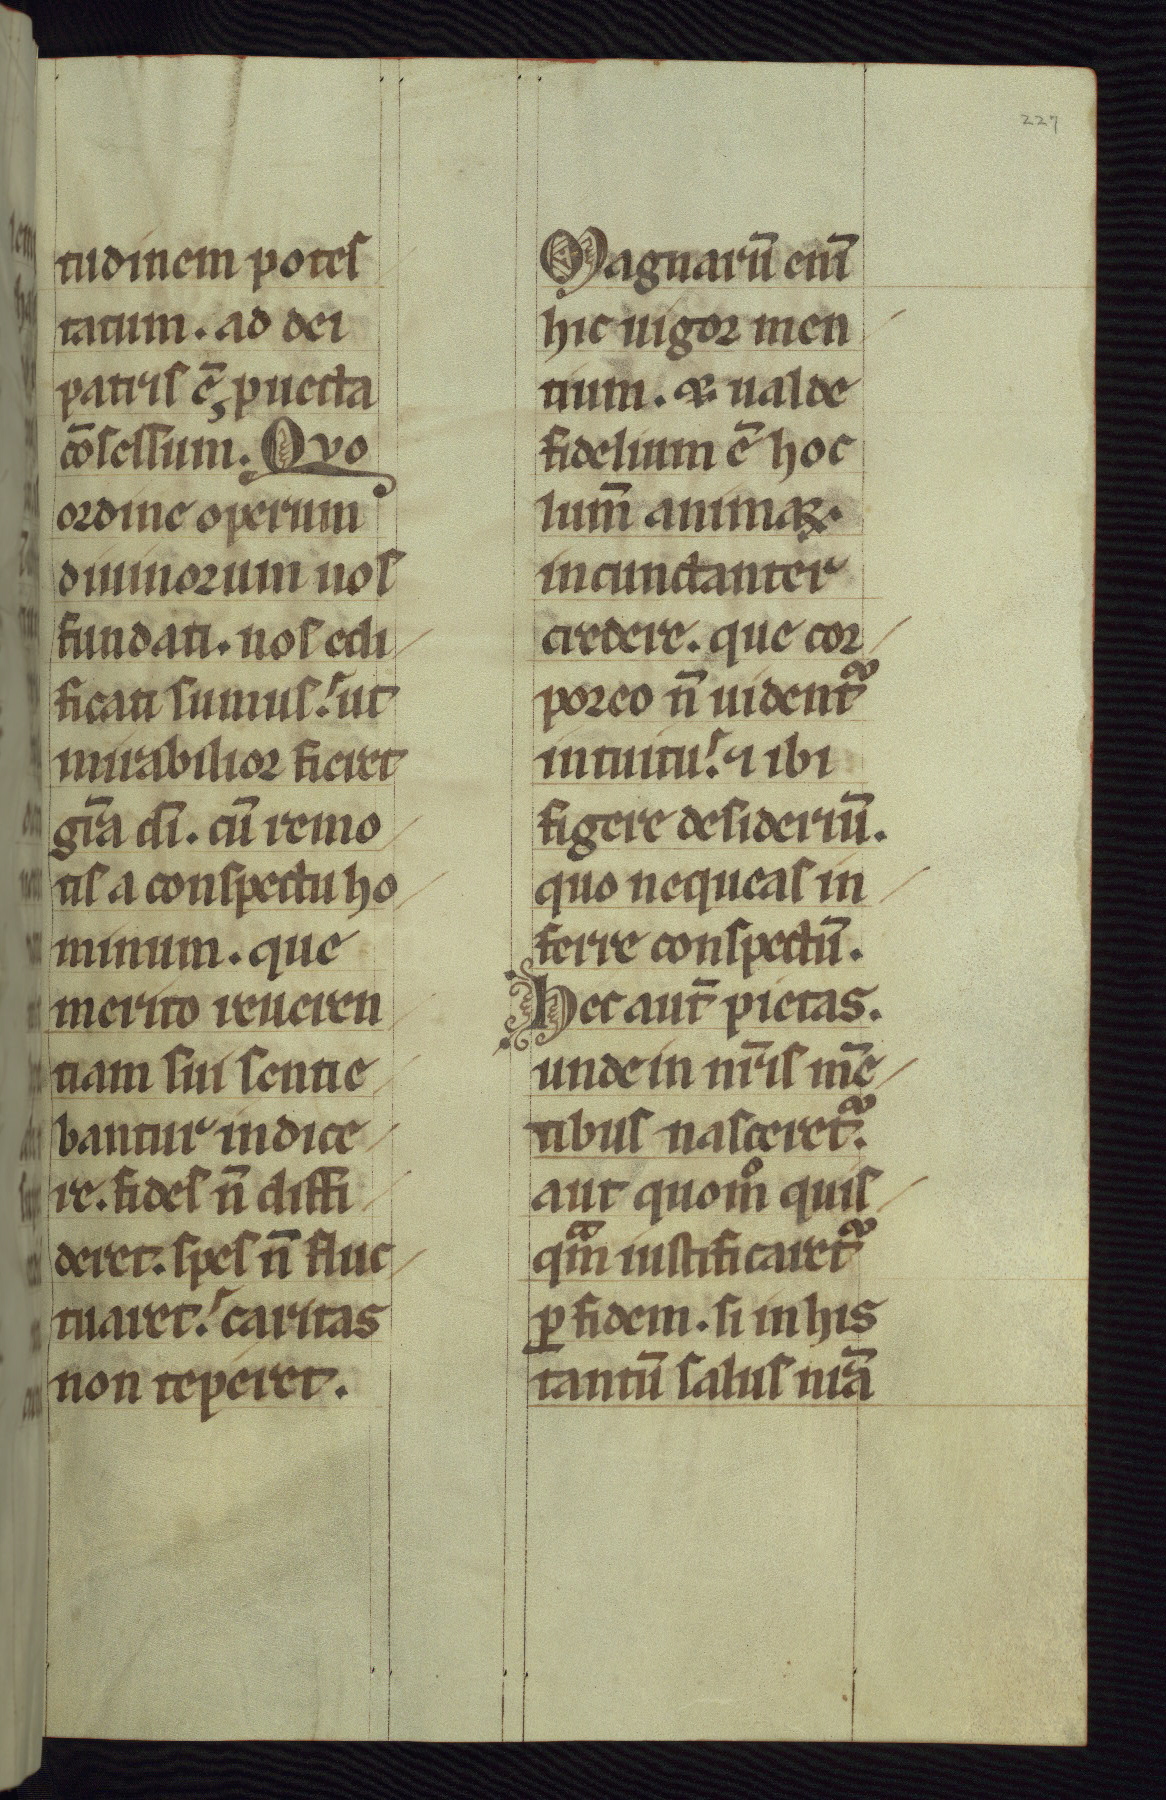 227
tudinem potes
tatum. ad dei
patris ē ꝓuecta
cōsessum. Qvo
ordine operum
diuinorum nos
fundati. nos edi
ficati sumus. ut
mirabilior fieret
gr̄a di̅. cū remo
tis a conspectu ho
minum. que
merito reueren
tiam sui sentie
bantur indice
re. fides n̄ diffi
deret. spes n̄ fluc
tuaret. caritas
non teperet.
Magnarū eni̅
hic uigor men
tium. & ualde
fidelium ē hoc
lum̄ animaꝝ.
incunctanter
credere. que cor
poreo n̄ uident᷑
intuitu. ⁊ ibi
figere desideriū.
quo nequeas in
ferre conspectū.
Hec aut̄ pietas.
unde in nr̄is mē
tibus nasceret᷑.
aut quom̊ quis
qᵃ̄m iustificaret᷑
ꝑ fidem. si in his
tantū salus nr̄a